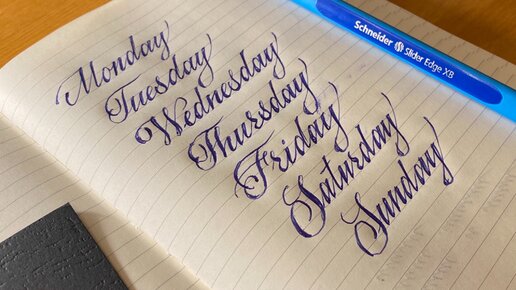 Monday
Tuesday
Wednesday
Thursday
Friday
Saturday
Sunday
Schneider Slider Edge XB